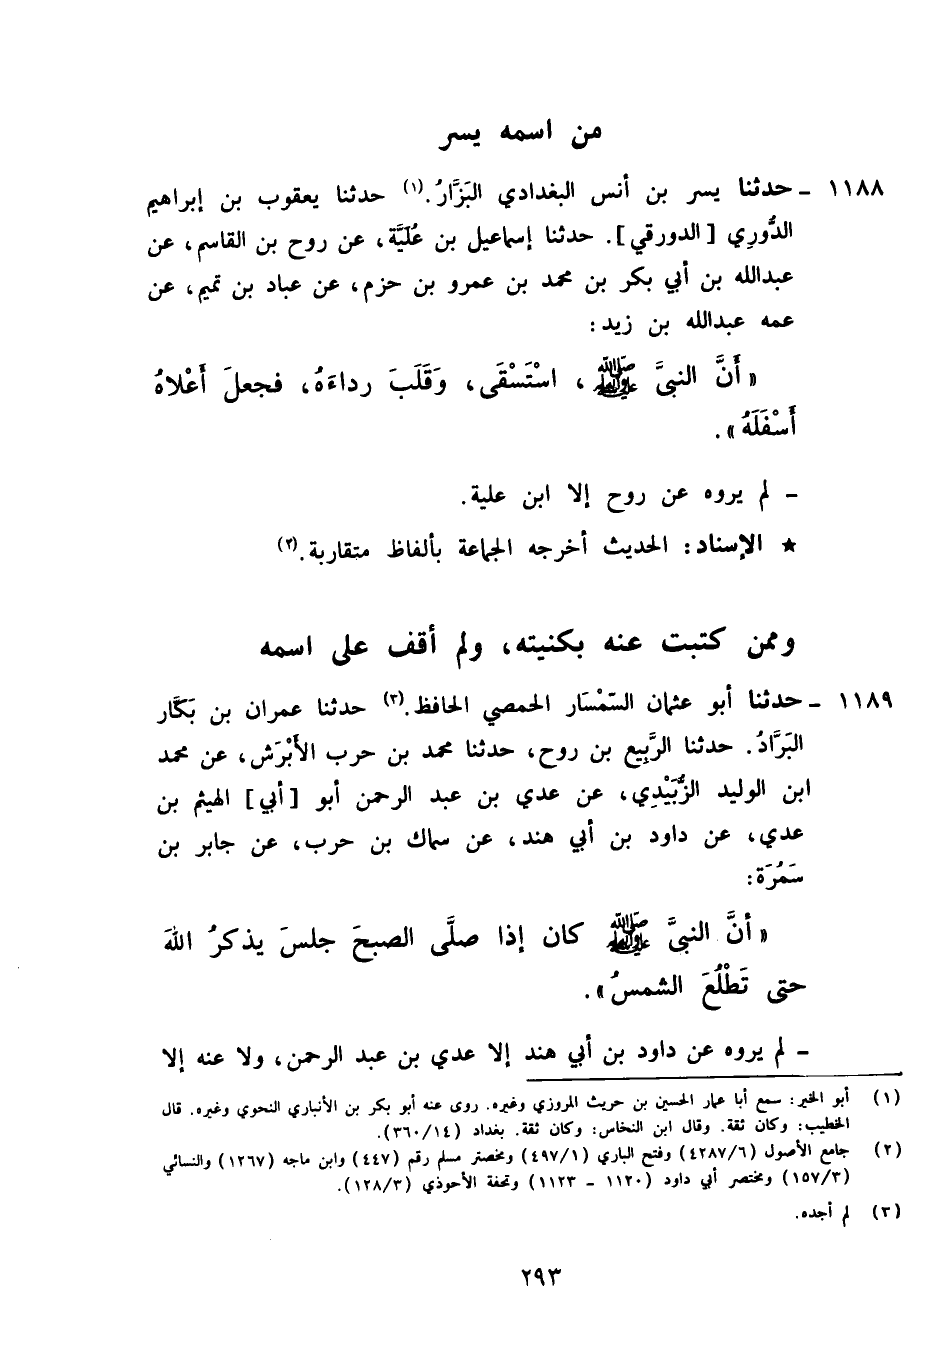 من اسمه يسر
١١٨٨ ـ حدثنا يسر بن أنس البغدادي البَزَّارُ.(١) حدثنا يعقوب بن إبراهيم
الدُّورِي [الدورقي]. حدثنا إسماعيل بن عُلَيَّة، عن روح بن القاسم، عن
عبدالله بن أبي بكر بن محمد بن عمرو بن حزم، عن عباد بن تميم، عن
عمه عبدالله بن زيد:
«أَنَّ النبيَّ ﷺ، اسْتَسْقَى، وَقَلَبَ رداءَهُ، فجعلَ أَعْلاهُ
أَسْفَلَهُ».
ـ لم يروه عن روح إلا ابن علية.
★ الإسناد: الحديث أخرجه الجماعة بألفاظ متقاربة.(٢)
وممن كتبت عنه بكنيته، ولم أقف على اسمه
١١٨٩ ـ حدثنا أبو عثمان السّمْسَار الحمصي الحافظ.(٣) حدثنا عمران بن بَكَّار
البَرَّادُ. حدثنا الرَّبِيع بن روح، حدثنا محمد بن حرب الأَبْرَش، عن محمد
ابن الوليد الزُّبَيْدِي، عن عدي بن عبد الرحمن أبو [أبي] الهيثم بن
عدي، عن داود بن أبي هند، عن سماك بن حرب، عن جابر بن
سَمُرَة:
«أنَّ النبيَّ ﷺ كان إذا صلَّى الصبحَ جلسَ يذكرُ اللهَ
حتى تَطْلُعَ الشمسُ».
ـ لم يروه عن داود بن أبي هند إلا عدي بن عبد الرحمن، ولا عنه إلا
(١) أبو الخير: سمع أبا عمار الحسين بن حريث المروزي وغيره. روى عنه أبو بكر بن الأنباري النحوي وغيره. قال
الخطيب: وكان ثقة. وقال ابن النخاس: وكان ثقة. بغداد (٣٦٠/١٤).
(٢) جامع الأصول (٤٢٨٧/٦) وفتح الباري (٤٩٧/١) ومختصر مسلم رقم (٤٤٧) وابن ماجه (١٢٦٧) والنسائي
(١٥٧/٣) ومختصر أبي داود (١١٢٠ ـ ١١٢٣) وتحفة الأحوذي (١٢٨/٣).
(٣) لم أجده.
٢٩٣